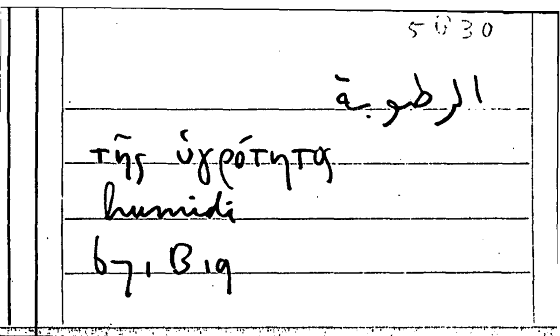 5030
الرطوبة
τῆς ὑγρότητα
humidi
67, B 19